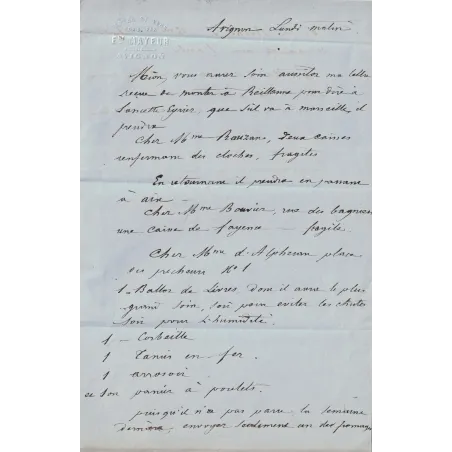 Fs MAYEUR
AVIGNON
Avignon Lundi matin
Mion, vous aurez soin aussitot ma lettre
reçue de monter à Reillanne pour dire à
Eyrier, que s'il va à marseille, il
prendra
Chez Mme Bauzan, deux caisses
renfermant des cloches, fragiles
En retournant il prendra en passant
à aix
Chez Mme Bouvier, rue des bagniers
une caisse de fayence — fragile.
Chez Mme d'Alpheran place
des pecheurs No 1
1 - Ballot de Livres dont il aura le plus
grand soin, soit pour eviter les chutes
soit pour l'humidité.
1 - Corbeille
1 Tamis en fer.
1 arrosoir
et son panier à poulets.
puisqu'il n'a pas paru la semaine
derniere, envoyer seulement un des fromages